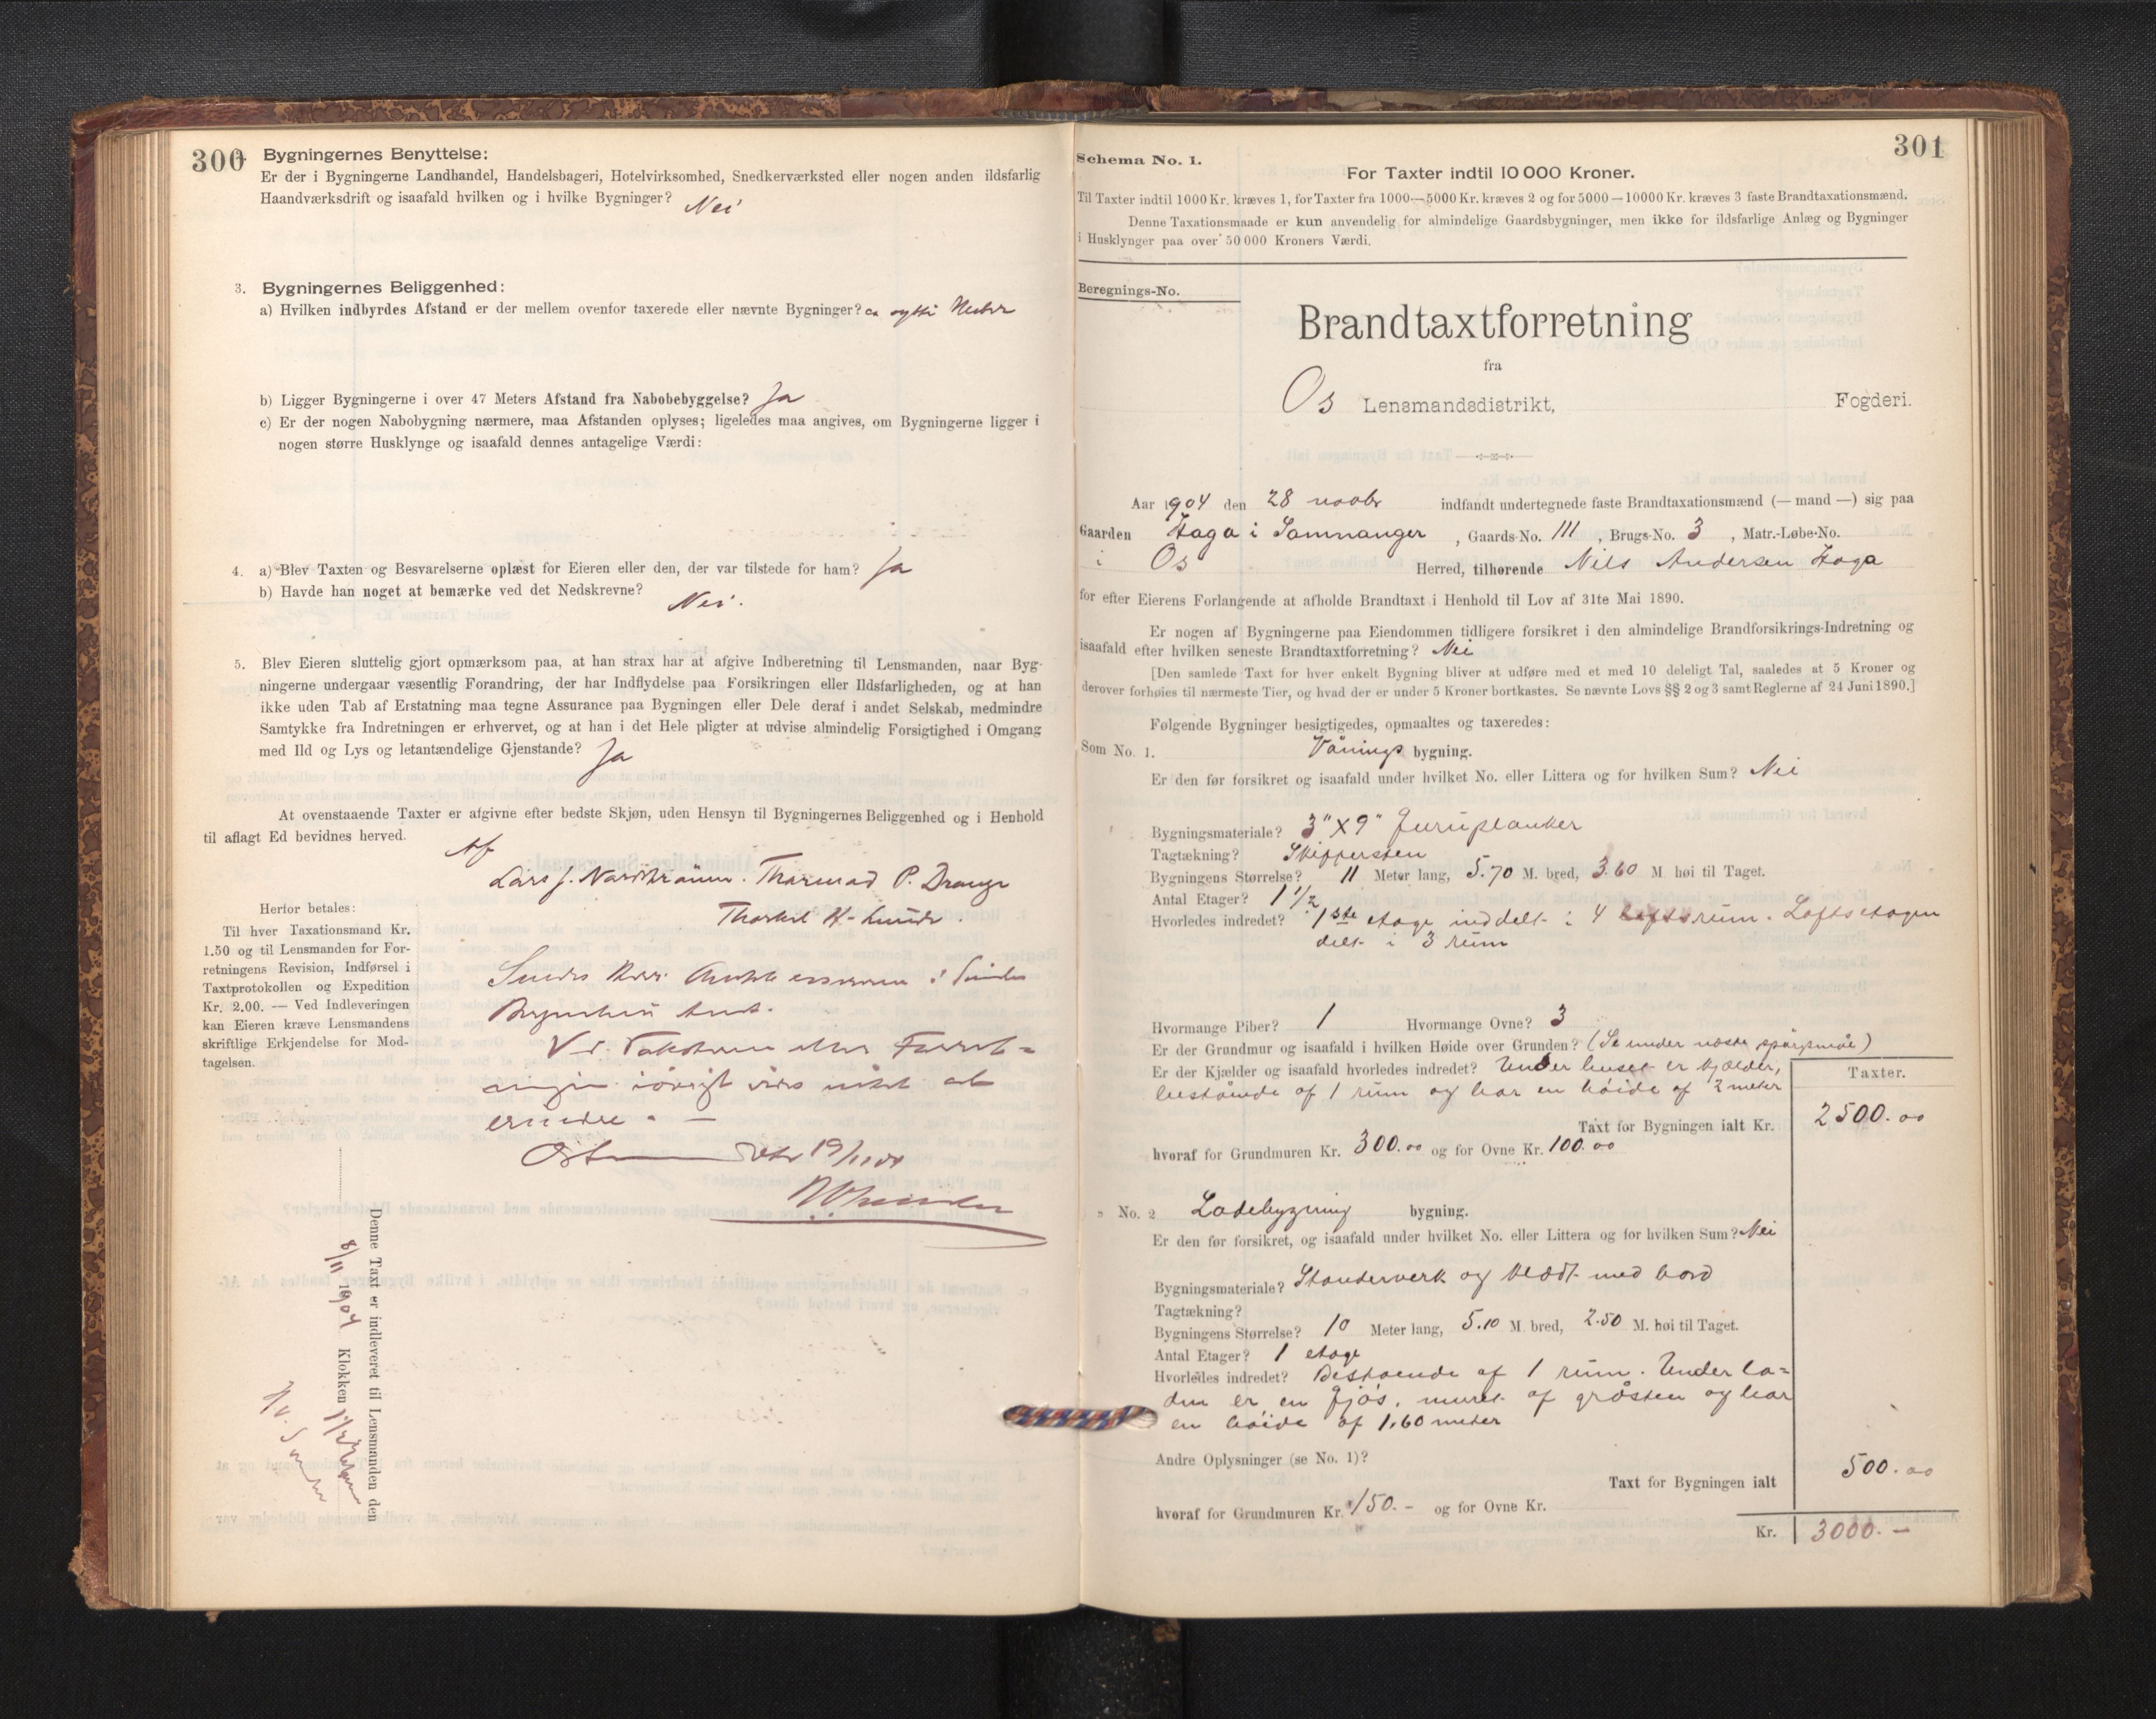 300
2. Bygningernes Benyttelse:
Er der i Bygningerne Landhandel, Handelsbageri, Hotelvirksomhed, Snedkerværksted eller nogen anden ildsfarlig
Haandværksdrift og isaafald hvilken og i hvilke Bygninger? Nei
3. Bygningernes Beliggenhed:
a) Hvilken indbyrdes Afstand er der mellem ovenfor taxerede eller nævnte Bygninger? ca Meter
b) Ligger Bygningerne i over 47 Meters Afstand fra Nabobebyggelse? Ja
c) Er der nogen Nabobygning nærmere, maa Afstanden oplyses; ligeledes maa angives, om Bygningerne ligger i
nogen større Husklynge og isaafald dennes antagelige Værdi:
4. a) Blev Taxten og Besvarelserne oplæst for Eieren eller den, der var tilstede for ham? Ja
b) Havde han noget at bemærke ved det Nedskrevne? Nei.
5. Blev Eieren sluttelig gjort opmærksom paa, at han strax har at afgive Indberetning til Lensmanden, naar Byg-
ningerne undergaar væsentlig Forandring, der har Indflydelse paa Forsikringen eller Ildsfarligheden, og at han
ikke uden Tab af Erstatning maa tegne Assurance paa Bygningen eller Dele deraf i andet Selskab, medmindre
Samtykke fra Indretningen er erhvervet, og at han i det Hele pligter at udvise almindelig Forsigtighed i Omgang
med Ild og Lys og letantændelige Gjenstande? Ja
At ovenstaaende Taxter er afgivne efter bedste Skjøn, uden Hensyn til Bygningernes Beliggenhed og i Henhold
til aflagt Ed bevidnes herved.
Af
Lars J. Thormod P. Drange
Thorkel K. Lunde.
Herfor betales:
Til hver Taxationsmand Kr.
1.50 og til Lensmanden for For-
retningens Revision, Indførsel i
Taxtprotokollen og Expedition
Kr. 2.00. — Ved Indleveringen
kan Eieren kræve Lensmandens
skriftlige Erkjendelse for Mod-
tagelsen.
Denne Taxt er indleveret til Lensmanden den
8/11 1904 Klokken
301
Schema No. 1.
For Taxter indtil 10 000 Kroner.
Til Taxter indtil 1000 Kr. kræves 1, for Taxter fra 1000—5000 Kr. kræves 2 og for 5000—10000 Kr. kræves 3 faste Brandtaxationsmænd.
Denne Taxationsmaade er kun anvendelig for almindelige Gaardsbygninger, men ikke for ildsfarlige Anlæg og Bygninger
i Husklynger paa over 50 000 Kroners Værdi.
Beregnings-No.
Brandtaxtforretning
fra
Os Lensmandsdistrikt, Fogderi.
Aar 1904 den 28 indfandt undertegnede faste Brandtaxationsmænd (— mand —) sig paa
Gaarden Haga i Samnanger, Gaards-No. 111, Brugs-No. 3, Matr.-Løbe-No.
i Os Herred, tilhørende Nils Andersen Haga
for efter Eierens Forlangende at afholde Brandtaxt i Henhold til Lov af 31te Mai 1890.
Er nogen af Bygningerne paa Eiendommen tidligere forsikret i den almindelige Brandforsikrings-Indretning og
isaafald efter hvilken seneste Brandtaxtforretning? Nei
[Den samlede Taxt for hver enkelt Bygning bliver at udføre med et med 10 deleligt Tal, saaledes at 5 Kroner og
derover forhøies til nærmeste Tier, og hvad der er under 5 Kroner bortkastes. Se nævnte Lovs §§ 2 og 3 samt Reglerne af 24 Juni 1890.]
Følgende Bygninger besigtigedes, opmaaltes og taxeredes:
Som No. 1. Vånings bygning.
Er den før forsikret og isaafald under hvilket No. eller Littera og for hvilken Sum? Nei
Bygningsmateriale? 3" x 9" Furuplanker
Tagtækning? Skiffersten
Bygningens Størrelse? 11 Meter lang, 5.70 M. bred, 3.60 M. høi til Taget.
Antal Etager? 1 1/2
Hvorledes indredet? 1ste etage inddelt i 4 rum. Loftsetagen
delt i 3 rum
Hvormange Piber? 1 Hvormange Ovne? 3
Er der Grundmur og isaafald i hvilken Høide over Grunden? (Se under næste spörgsmål)
Er der Kjælder og isaafald hvorledes indredet? Under huset er kjælder,
bestående af 1 rum og har en höide af 2 meter
Taxter.
Taxt for Bygningen ialt Kr. 2500.00
hvoraf for Grundmuren Kr. 300.00 og for Ovne Kr. 100.00
" No. 2 Ladebygning bygning.
Er den før forsikret, og isaafald under hvilket No. eller Littera og for hvilken Sum? Nei
Bygningsmateriale? Standerverk og klædt med bord
Tagtækning?
Bygningens Størrelse? 10 Meter lang, 5.10 M. bred, 2.50 M. høi til Taget.
Antal Etager? 1 etage
Hvorledes indredet? Bestaende af 1 rum. Under la-
den er en fjös, muret af gråsten og har
en höide af 1,60 meter
Andre Oplysninger (se No. 1)?
Taxt for Bygningen ialt 500.00
hvoraf for Grundmuren Kr. 150.- og for Ovne Kr.
Kr. 3000.-